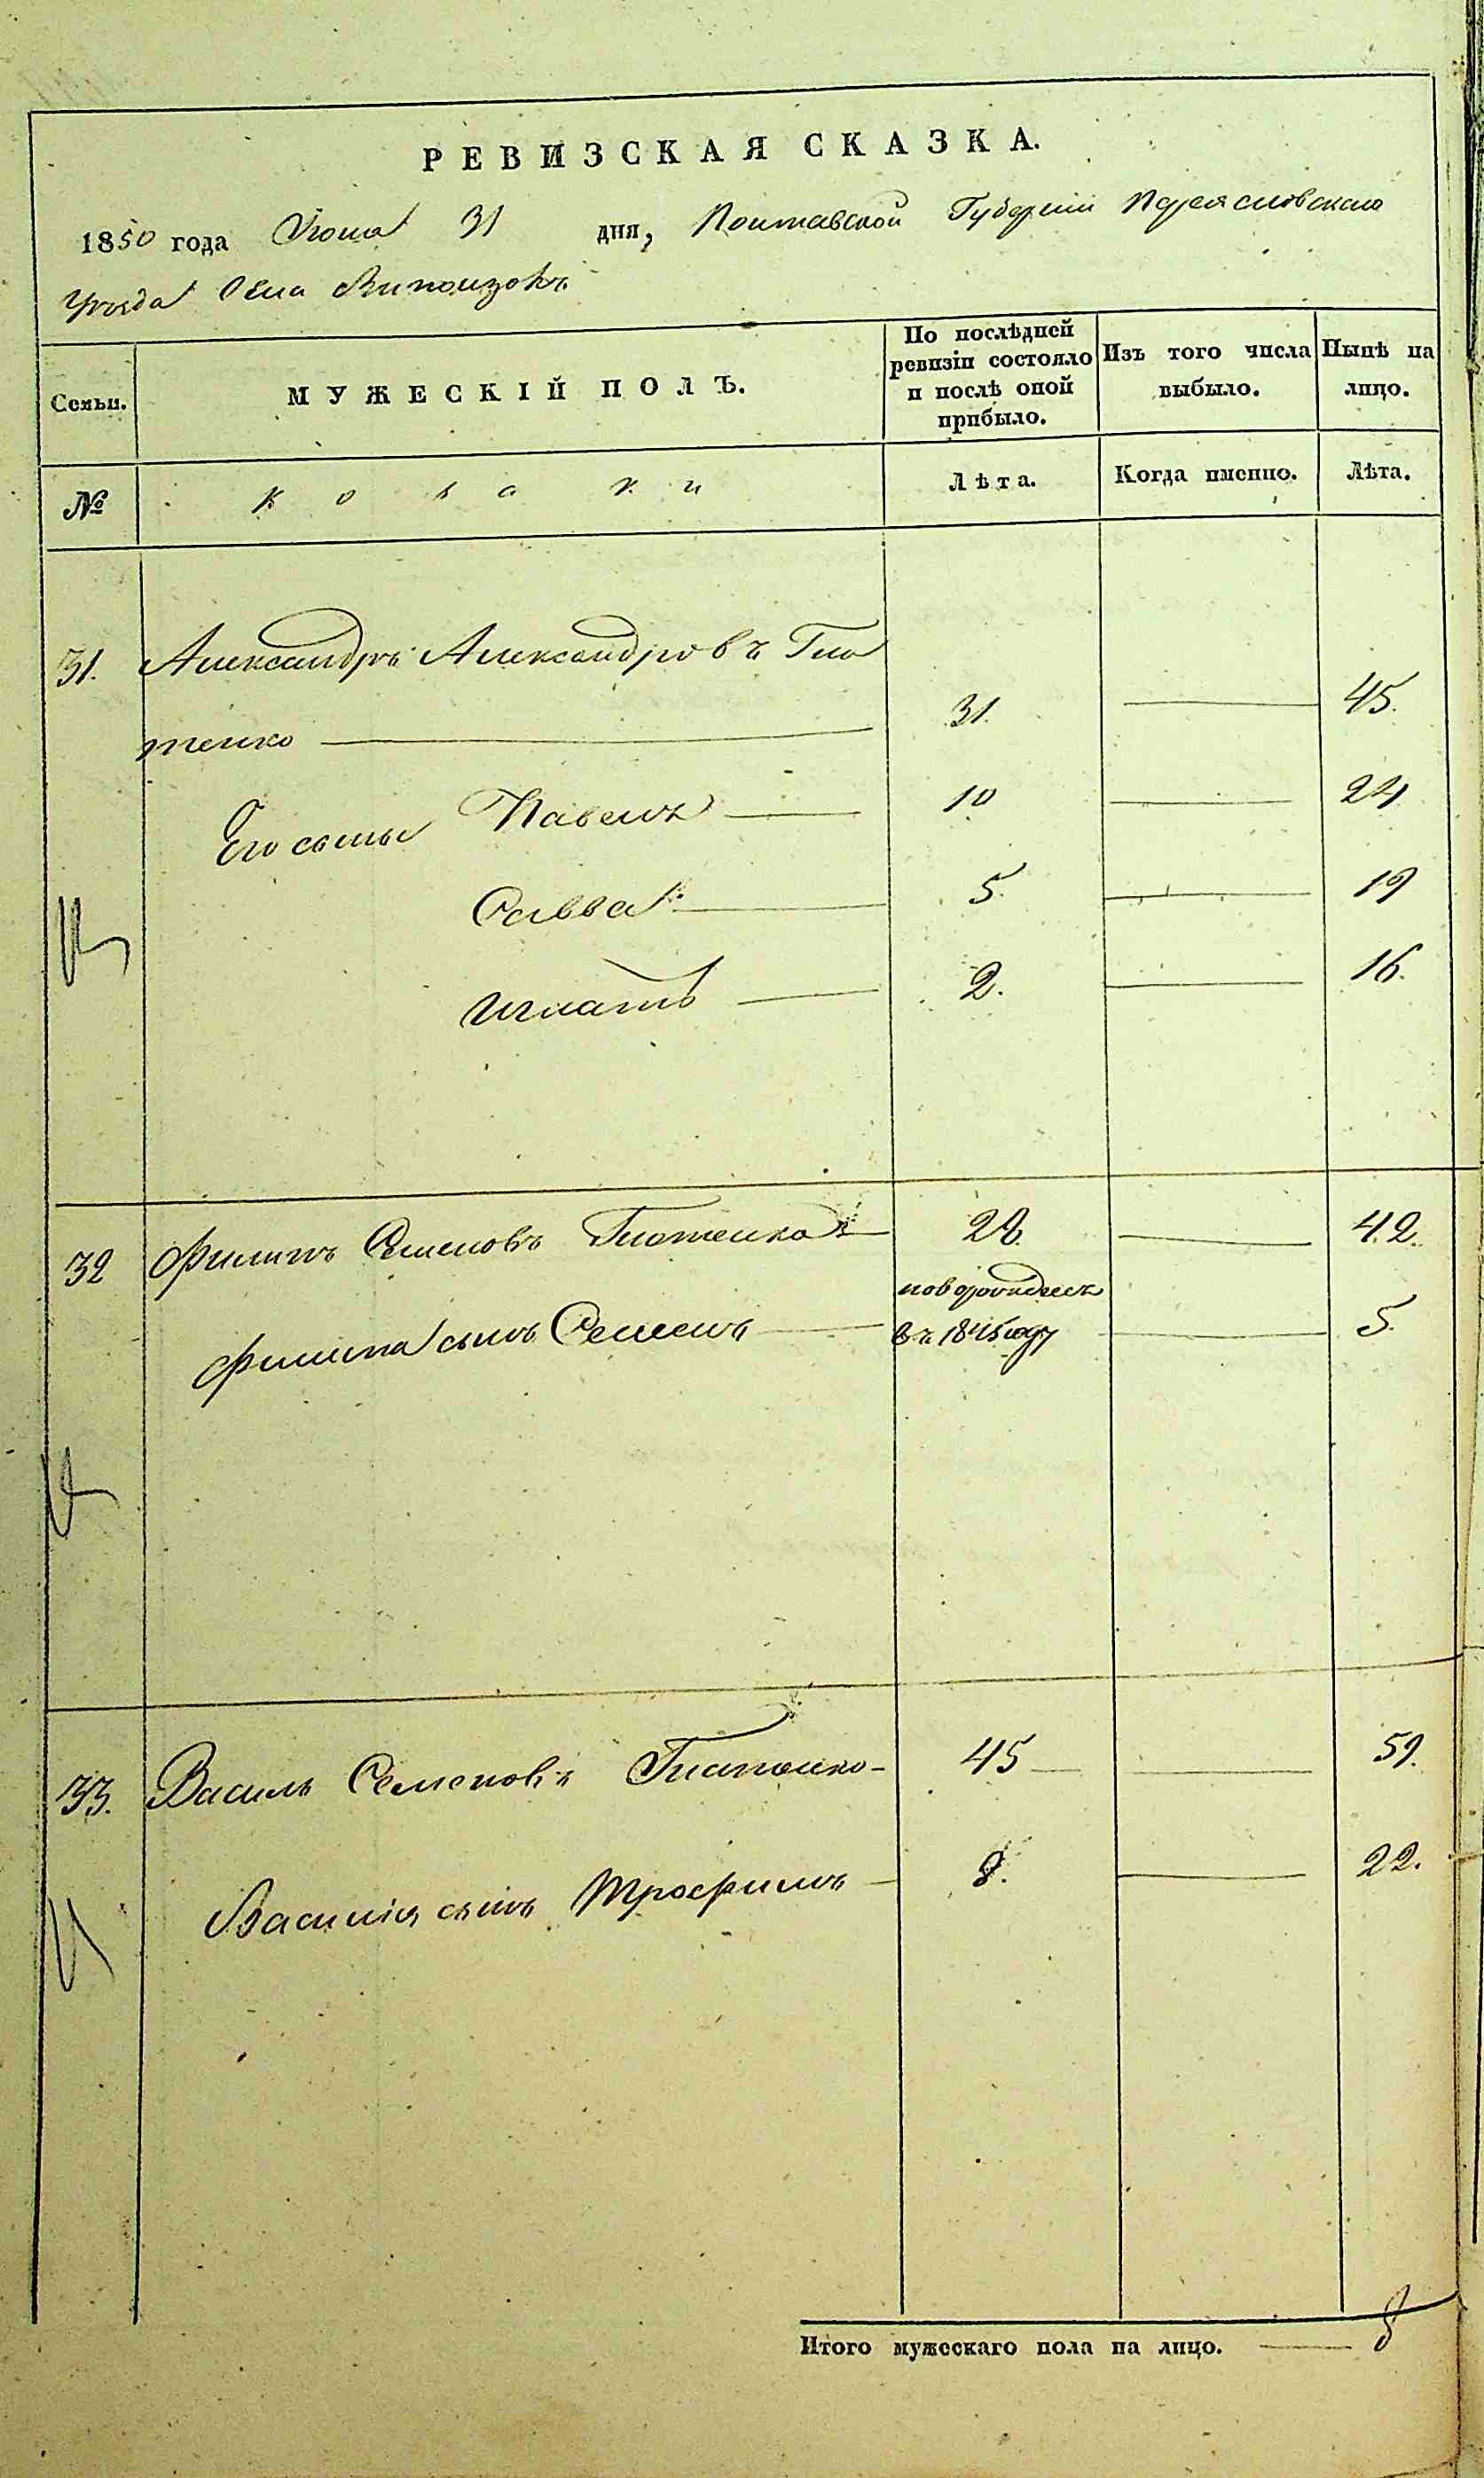 РЕВИЗСКАЯ СКАЗКА.
1850 года 31 дня, Полтавской Губерніи Переясловскаго
Уѣзда Села Виползокъ
Семьи. МУЖЕСКІЙ ПОЛЪ. По послѣдней ревизіи состояло и послѣ оной прибыло. Изъ того числа выбыло. Нынѣ на лицо.
№ козаки Лѣта. Когда именно. Лѣта.
31. Александръ Александровъ Гна
тенко 31. 45.
Его сыны Павелъ 10 24
Савва 5. 19
Игнатъ 2. 16.
32 Филипъ Семеновъ Гнатенко 28. 42.
Филипа сынъ Семенъ новорожденъ въ 1845 году 5.
33. Василь Семеновъ Гнатенко 45 59.
Василія сынъ Трофимъ 8. 22.
Итого мужескаго пола на лицо. 8